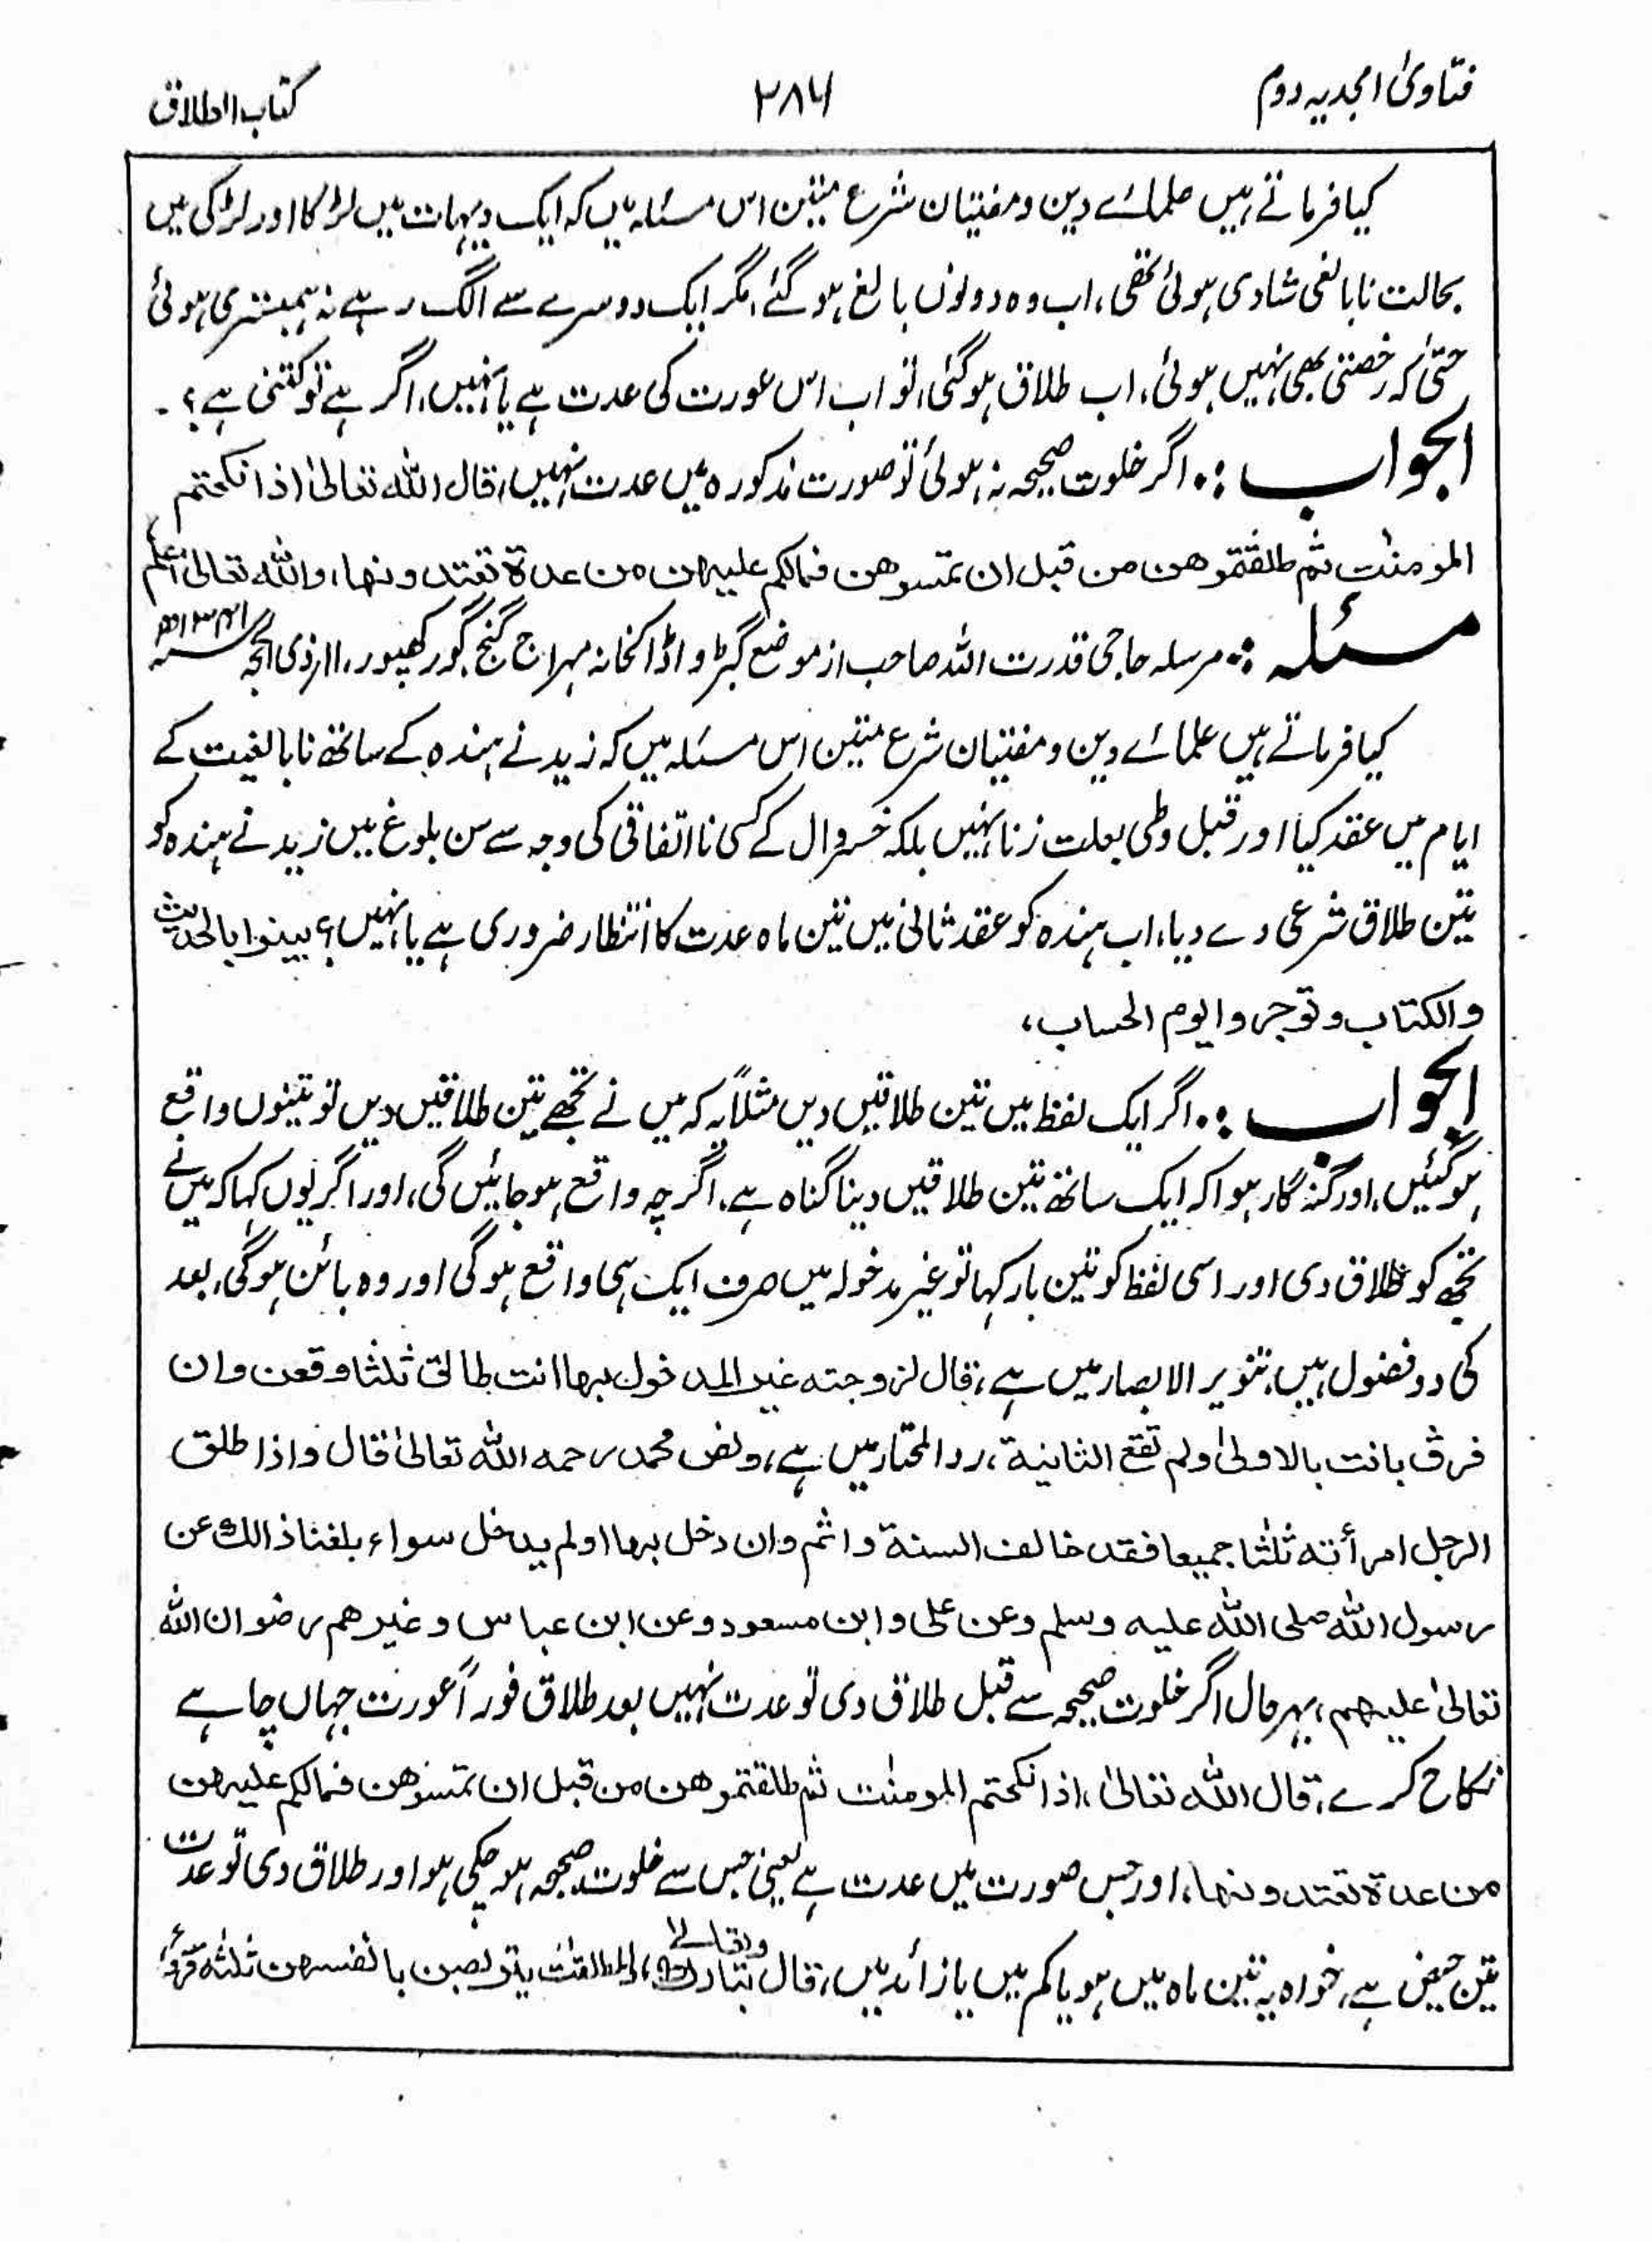 فتاویٰ امجدیہ دوم
۲۸۶
کتاب الطلاق
کیا فرماتے ہیں علمائے دین و مفتیان شرع متین اس مسئلہ میں کہ ایک دیہات میں لڑکا اور لڑکی میں
بحالت نابالغی شادی ہوئی تھی، اب وہ دونوں بالغ ہو گئے، مگر ایک دوسرے سے الگ رہے نہ ہمبستری ہوئی
حتیٰ کہ رخصتی بھی نہیں ہوئی، اب طلاق ہو گئی، تو اب اس عورت کی عدت ہے یا نہیں، اگر ہے تو کتنی ہے؟۔
الجواب :۔ اگر خلوت صحیحہ نہ ہوئی تو صورت مذکورہ میں عدت نہیں، قال اللہ تعالیٰ اذا نکحتم
المومنٰت ثم طلقتموھن من قبل ان تمسوھن فمالکم علیھن من عدۃ تعتدونھا، واللہ تعالیٰ اعلم
مسئلہ :۔ مرسلہ حاجی قدرت اللہ صاحب از موضع گبڑوا ڈاکخانہ مہراج گنج گورکھپور، ۱۱ ذی الحجہ
کیا فرماتے ہیں علمائے دین و مفتیان شرع متین اس مسئلہ میں کہ زید نے ہندہ کے ساتھ نابالغیت کے
ایام میں عقد کیا اور قبل وطی بعلت زنا نہیں بلکہ خسروال کے کسی نااتفاقی کی وجہ سے سن بلوغ میں زید نے ہندہ کو
تین طلاق شرعی دے دیا، اب ہندہ کو عقد ثانی میں تین ماہ عدت کا انتظار ضروری ہے یا نہیں؟ بینوا بالحدیث
والکتاب و توجروا یوم الحساب،
الجواب :۔ اگر ایک لفظ میں تین طلاقیں دیں مثلاً یہ کہ میں نے تجھے تین طلاقیں دیں تو تینوں واقع
ہو گئیں، اور گنہ گار ہوا کہ ایک ساتھ تین طلاقیں دینا گناہ ہے، اگرچہ واقع ہو جائیں گی، اور اگر یوں کہا کہ میں نے
تجھ کو طلاق دی اور اسی لفظ کو تین بار کہا تو غیر مدخولہ میں صرف ایک ہی واقع ہوگی اور وہ بائن ہوگی، بعد
کی دو فضول ہیں، تنویر الابصار میں ہے، قال لزوجتہ غیر المدخول بھا انت طالق ثلثا وقعن وان
فرق بانت بالاولیٰ ولم تقع الثانیۃ، رد المحتار میں ہے، ونص محمد رحمہ اللہ تعالیٰ قال واذا طلق
الرجل امرأتہ ثلٰثا جمیعا فقد خالف السنۃ واثم وان دخل بھا اولم یدخل سواء بلغنا ذالک عن
رسول اللہ صلی اللہ علیہ وسلم وعن علی وابن مسعود وعن ابن عباس وغیرھم رضوان اللہ
تعالیٰ علیھم، بہر حال اگر خلوت صحیحہ سے قبل طلاق دی تو عدت نہیں بعد طلاق فوراً عورت جہاں چاہے
نکاح کرے، قال اللہ تعالیٰ، اذا نکحتم المومنٰت ثم طلقتموھن من قبل ان تمسوھن فمالکم علیھن
من عدۃ تعتدونھا، اور جس صورت میں عدت ہے یعنی جس سے خلوت صحیحہ ہو چکی ہو اور طلاق دی تو عدت
تین حیض ہے، خواہ یہ تین ماہ میں ہو یا کم میں یا زائد میں، قال تبارک وتعالیٰ، والمطلقٰت یتربصن بانفسھن ثلثۃ قروء،